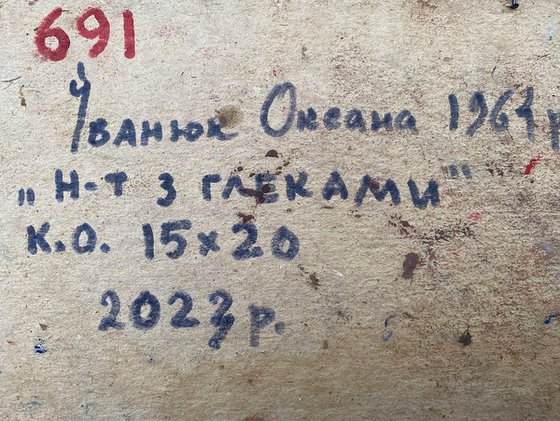 691
Іванюк Оксана 1964 р
„Н-т з глеками"
К.О. 15х20
2023 р.